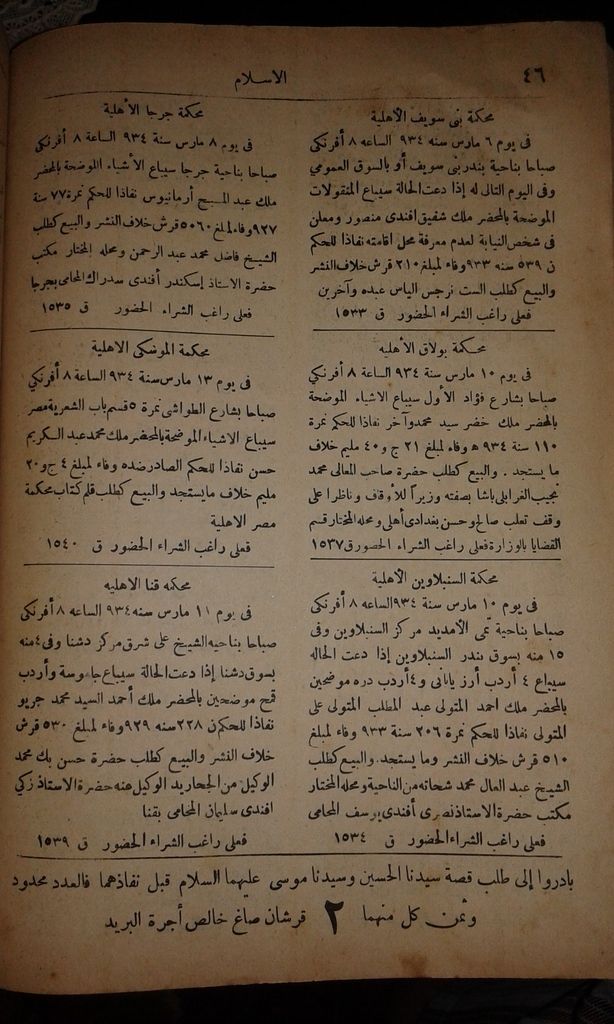 ٤٦
الاسلام
محكمة بنى سويف الأهلية
فى يوم ٦ مارس سنه ٩٣٤ الساعه ٨ أفرنكى
صباحا بناحية بندر بنى سويف أو بالسوق العمومي
وفى اليوم التالى له إذا دعت الحالة سيباع المنقولات
الموضحة بالمحضر ملك شفيق افندى منصور ومعلن
فى شخص النيابة لعدم معرفة محل اقامته نفاذا للحكم
ن ٥٣٩ سنه ٩٣٣ وفاء لمبلغ ٢١٠ قرش خلاف النشر
والبيع كطلب الست نرجس الياس عبده وآخرين
فعلى راغب الشراء الحضور ق ١٥٣٣
محكمة بولاق الأهليه
فى يوم ١٠ مارس سنة ٩٣٤ الساعة ٨ أفرنكي
صباحا بشارع فؤاد الأول سيباع الاشياء الموضحة
بالمحضر ملك خضر سيد محمد وآخر نفاذا للحكم نمرة
١١٠ سنة ٩٣٤ ه وفاء لمبلغ ٢١ ج و ٤٠ مليم خلاف
ما يستجد . والبيع كطلب حضرة صاحب المعالى محمد
نجيب الغرابلى باشا بصفته وزيرا للأوقاف وناظرا على
وقف تعلب صالح وحسن بغدادى أهلى ومحله المختار قسم
القضايا بالوزارة فعلى راغب الشراء الحضور ق ١٥٣٧
محكمة السنبلاوين الأهلية
فى يوم ١٠ مارس سنة ٩٣٤ الساعه ٨ أفرنكى
صباحا بناحية تمى الأمديد مركز السنبلاوين وفى
١٥ منه بسوق بندر السنبلاوين إذا دعت الحاله
سيباع ٤ أردب أرز يابانى و ٤ أردب دره موضحين
بالمحضر ملك احمد المتولى عبد المطلب المتولى على
المتولى نفاذا للحكم نمرة ٢٠٦ سنة ٩٣٣ وفاء لمبلغ
٥١٠ قرش خلاف النشر وما يستجد والبيع كطلب
الشيخ عبد العال محمد شحاته من الناحية ومحله المختار
مكتب حضرة الاستاذ نصرى أفندى يوسف المحامى
فعلى راغب الشراء الحضور ق ١٥٣٤
محكمة جرجا الأهلية
فى يوم ٨ مارس سنة ٩٣٤ الساعة ٨ أفرنكى
صباحا بناحية جرجا سيباع الأشياء الموضحة بالمحضر
ملك عبد المسيح أرمانيوس نفاذا للحكم نمرة ٧٧ سنة
٩٢٧ وفاء لمبلغ ٥٠٦٠ قرش خلاف النشر والبيع كطلب
الشيخ فاضل محمد عبد الرحمن ومحله المختار مكتب
حضرة الاستاذ إسكندر أفندى سدراك المحامى بجرجا
فعلى راغب الشراء الحضور ق ١٥٣٥
محكمة الموسكى الاهلية
فى يوم ١٣ مارس سنة ٩٣٤ الساعة ٨ أفرنكي
صباحا بشارع الطواشى نمرة ٥ قسم باب الشعرية مصر
سيباع الاشياء الموضحة بالمحضر ملك محمد عبد الكريم
حسن نفاذا للحكم الصادر ضده وفاء لمبلغ ٤ ج و ٢٠
مليم خلاف ما يستجد والبيع كطلب قلم كتاب محكمة
مصر الاهلية
فعلى راغب الشراء الحضور ق ١٥٤٠
محكمه قنا الاهليه
فى يوم ١١ مارس سنه ٩٣٤ الساعه ٨ أفرنكى
صباحا بناحيه الشيخ على شرق مركز دشنا وفى ٤ منه
بسوق دشنا إذا دعت الحالة سيباع جاموسة وأردب
قمح موضحين بالمحضر ملك أحمد السيد محمد جربو
نفاذا للحكم ن ٢٢٨ سنه ٩٢٩ وفاء لمبلغ ٥٣٠ قرش
خلاف النشر والبيع كطلب حضرة حسن بك محمد
الوكيل من الجحاريد الوكيل عنه حضرة الاستاذ زكي
افندى سليمان المحامى بقنا
فعلى راغب الشراء الحضور ق ١٥٣٩
بادروا إلى طلب قصة سيدنا الحسين وسيدنا موسى عليهما السلام قبل نفاذهما فالعدد محدود
وثمن كل منهما ٢ قرشان صاغ خالص أجرة البريد